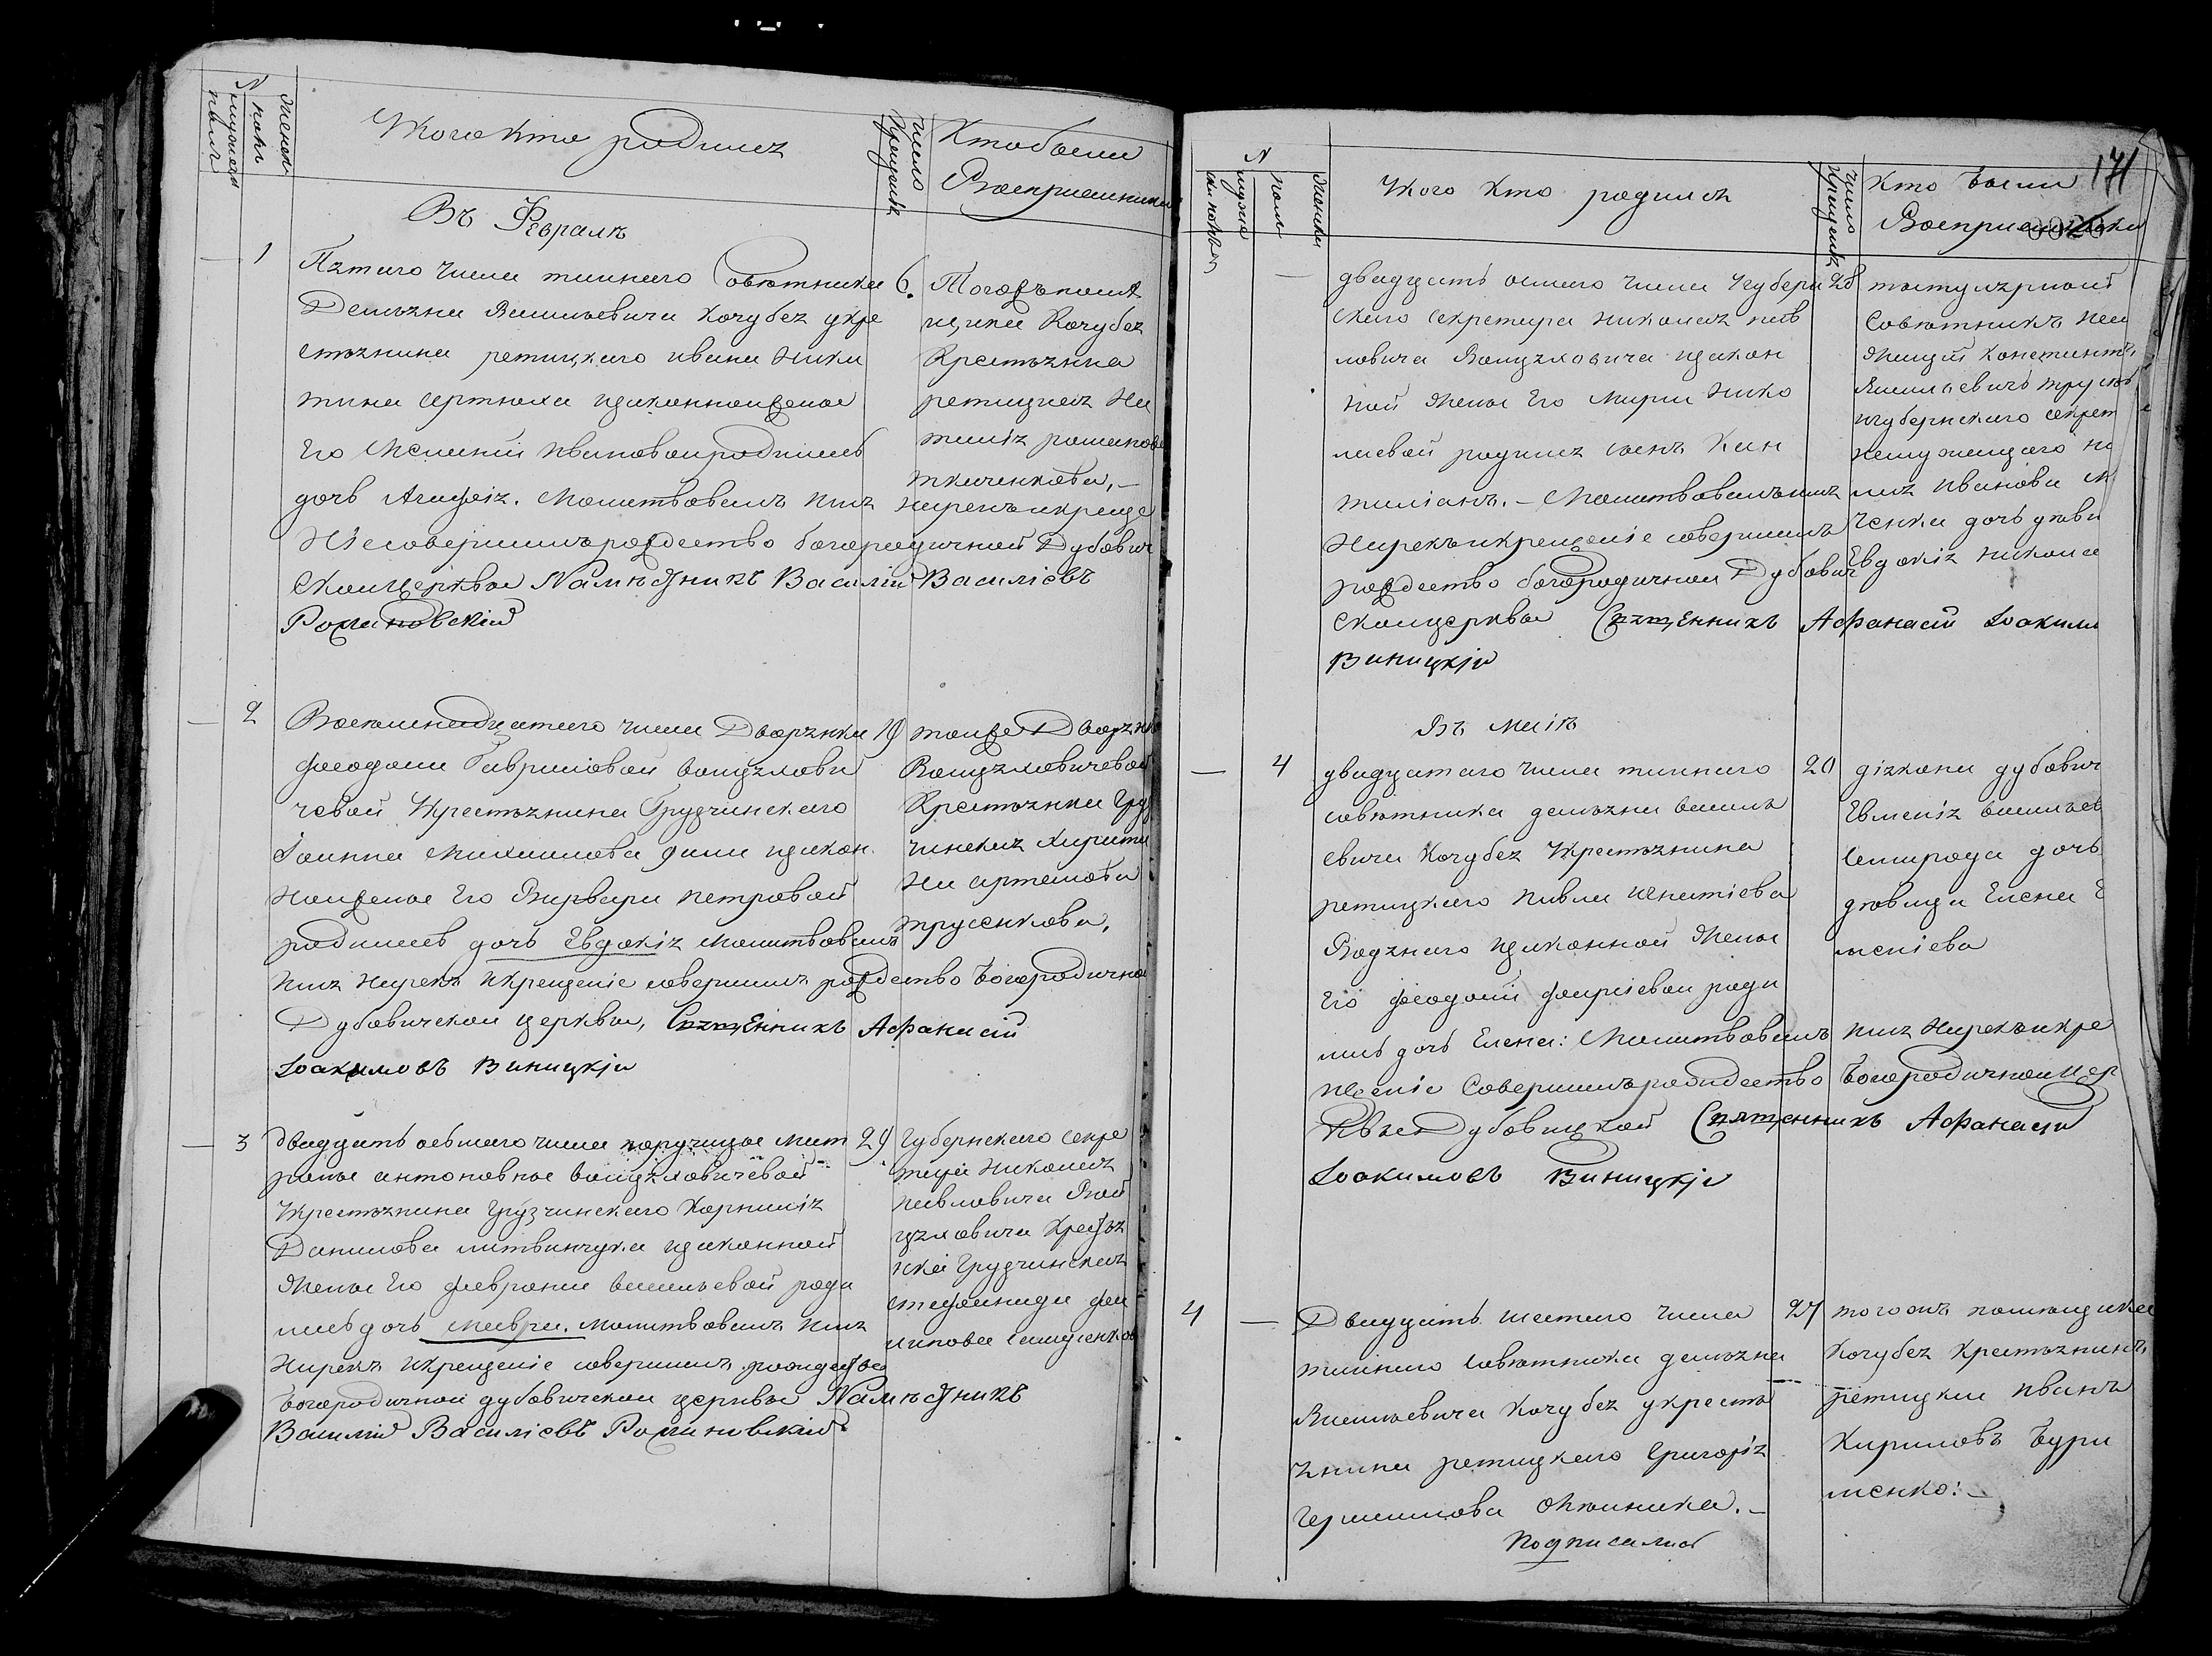 N
мужеска
пола
женска
пола
У кого кто родился
число
крещенія
Кто были
Восприемники
Въ Февралѣ
1
Пятаго числа тайнаго Совѣтника
Демьяна Васильевича Кочубея укре
стьянина ретицкаго Ивана Ники
тина изаконной жены
Его Ивановой родилась
дочь Агафія. Молитвовалъ имя
Нарекъ и крещеніе совершилъ рождество богородичной Дубович
ской церквы Намѣстникъ Василій Василіевъ
Романовскій
6.
Того же помѣ
щика Кочубея
Крестьянка
ретицкая На
талія романова
ткаченкова,
2
Восемнадцатаго числа Дворянки
феодосии Гавриловой войцѣхови
чевой Крестьянина Грузчинскаго
Іоанна Михаилова изакон
ной жены Его Варвары петровой
родилась дочь Евдокія молитвовалъ
имя Нарекъ и крещеніе совершилъ рождество Богородично
Дубовичской церквы, Священникъ Афанасій
Іоакимовъ Виницкій
19
тойже Дворянк
Войцѣховичевой
Крестьянка Груз
чинская
На артемова
трусенкова,
3
Двадцать осьмаго числа порутчицы Мат
роны антоновны войцѣховичевой
Укрестьянина грузчинскаго Корнилія
Данилова литвинчука изаконной
жены Его февронии васильевой роди
лась дочь Мавра. молитвовалъ имя
Нарекъ и крещеніе совершилъ рождество
Богородичной дубовичской церквы Намѣстникъ
Василій Василіевъ Романовскій
29
Губернскаго секре
таря Николая
павловича Вой
цѣховича крестья
нка Грузчинская
стефанида фи
липова
171
N
мужеска
пола
женска
У кого кто родился
число
крещенія
Кто были
Восприемники
двадцать осмаго числа Угуберн
скаго секретаря Николая пав
ловича Войцѣховича изакон
ной жены Его Марии Нико
лаевой родился сынъ Кин
тиліанъ. Молитвовалъ имя
Нарекъ и крещеніе совершилъ
рождество богородичной Дубович
ской церквы Священникъ Афанасій Іоаким
Виницкій
28
титулярной
Совѣтникъ Неслу
жащій Константинъ
Васильевичъ
игубернскаго секрет
неслужащаго
Иванова
ченка дочь дѣви
Евдокія никола
Въ маіѣ
4
двадцатаго числа тайнаго
совѣтника демьяна василь
евича Кочубея Укрестьянина
ретицкаго павла игнатіева
Водзяго изаконной жены
Его феодосій роди
лась дочь Елена: Молитвовалъ имя Нарекъ и кре
щеніе Совершилъ рождество Богородичной цер
квы Дубовицкой Священникъ Афанасій
Іоакимовъ Виницкій
20
діякона дубович
Евменія васильев
дочь
дѣвица Елена Е
меніева
4
Двадцать шестаго числа
тайнаго совѣтника демьяна
Васильевича Кочубея укресть
янина ретицкаго Григорія
27
тогожъ помѣщика
Кочубея крестьянинъ
ретицкій Иванъ
Кириловъ Бури
менко:
подписалъ